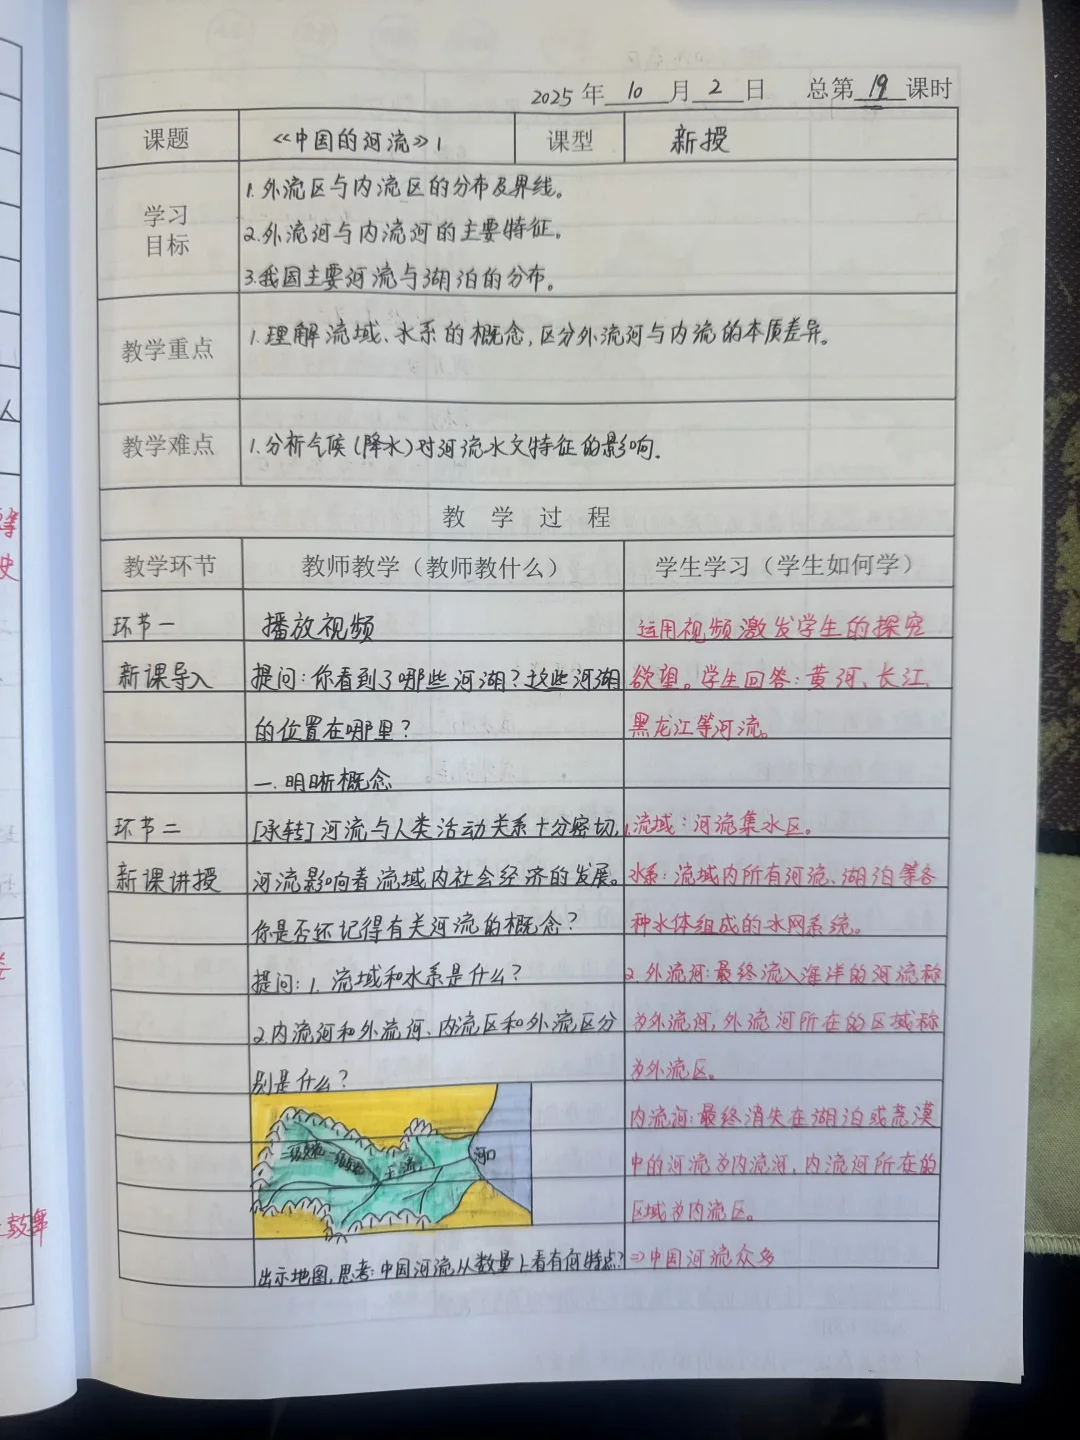 2025年10月2日 总第19课时
课题 《中国的河流》1 课型 新授
学习
目标
1.外流区与内流区的分布及界线。
2.外流河与内流河的主要特征。
3.我国主要河流与湖泊的分布。
教学重点
1.理解流域、水系的概念,区分外流河与内流的本质差异。
教学难点
1.分析气候(降水)对河流水文特征的影响.
教学过程
教学环节 教师教学(教师教什么) 学生学习(学生如何学)
环节一 播放视频 运用视频激发学生的探究
新课导入 提问:你看到了哪些河湖?这些河湖 欲望。学生回答:黄河、长江、
的位置在哪里? 黑龙江等河流。
一.明晰概念
环节二 [承转]河流与人类活动关系十分密切, 1.流域:河流集水区。
新课讲授 河流影响着流域内社会经济的发展。 水系:流域内所有河流、湖泊等各
你是否还记得有关河流的概念? 种水体组成的水网系统。
提问:1.流域和水系是什么? 2.外流河:最终流入海洋的河流称
2.内流河和外流河、内流区和外流区分 为外流河,外流河所在的区域称
别是什么? 为外流区。
内流河:最终消失在湖泊或荒漠
二级支流 一级支流 干流 河口
中的河流为内流河,内流河所在的
区域为内流区。
出示地图,思考:中国河流从数量上看有何特点? ⇒中国河流众多
人
等
史
娄
鼓舞